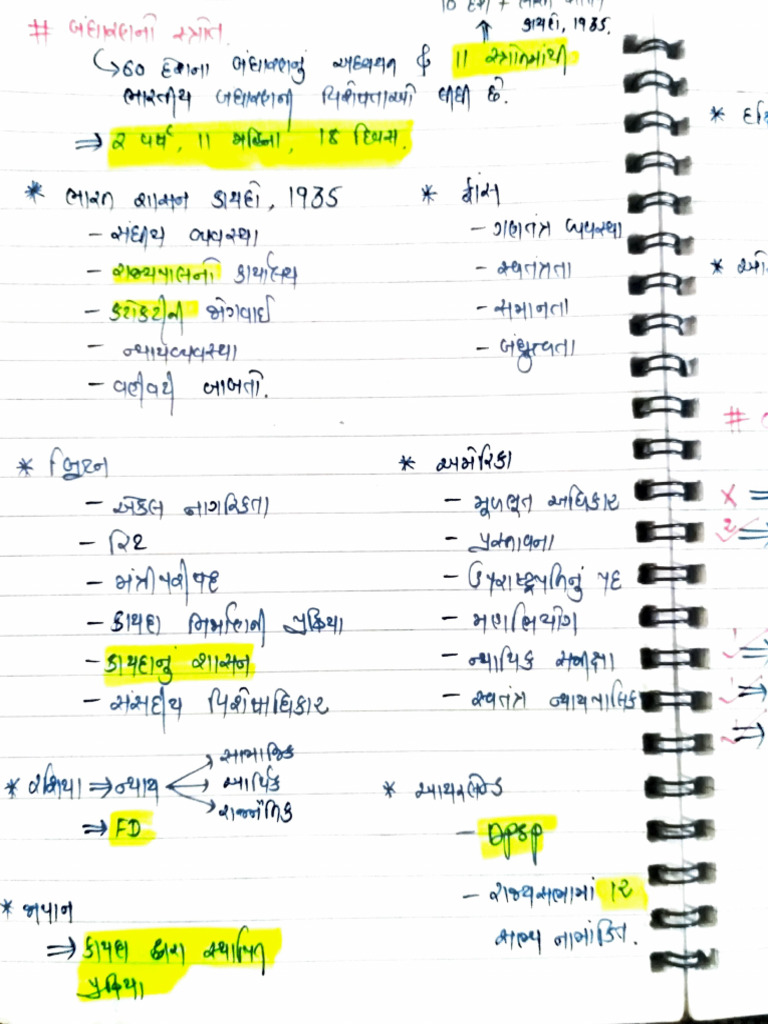 10 દેશ + ભારત શાસન
કાયદો, 1935.
# બંધારણનો સ્ત્રોત
↳ 60 દેશના બંધારણનું અધ્યયન & 11 સ્ત્રોતમાંથી
ભારતીય બંધારણની વિશેષતાઓ લીધી છે.
⇒ 2 વર્ષ, 11 મહિના, 18 દિવસ.
* ભારત શાસન કાયદો, 1935
- સંઘીય વ્યવસ્થા
- રાજ્યપાલની કાર્યાલય
- કટોકટીની જોગવાઈ
- ન્યાયવ્યવસ્થા
- વહીવટી બાબતો.
* ફ્રાંસ
- ગણતંત્ર વ્યવસ્થા
- સ્વતંત્રતા
- સમાનતા
- બંધુત્વતા
* બ્રિટન
- એકલ નાગરિકતા
- રિટ
- મંત્રીપરીષદ
- કાયદા નિર્માણની પ્રક્રિયા
- કાયદાનું શાસન
- સંસદીય વિશેષાધિકાર
* અમેરિકા
- મૂળભૂત અધિકાર
- પ્રસ્તાવના
- ઉપરાષ્ટ્રપતિનું પદ
- મહાભિયોગ
- ન્યાયિક સમીક્ષા
- સ્વતંત્ર ન્યાયપાલિકા
* રશિયા ⇒ ન્યાય
સામાજિક
આર્થિક
રાજનૈતિક
⇒ FD
* આયરલેન્ડ
- DPSP
- રાજ્યસભામાં 12
સભ્ય નામાંકિત.
* જાપાન
⇒ કાયદા દ્વારા સ્થાપિત
પ્રક્રિયા